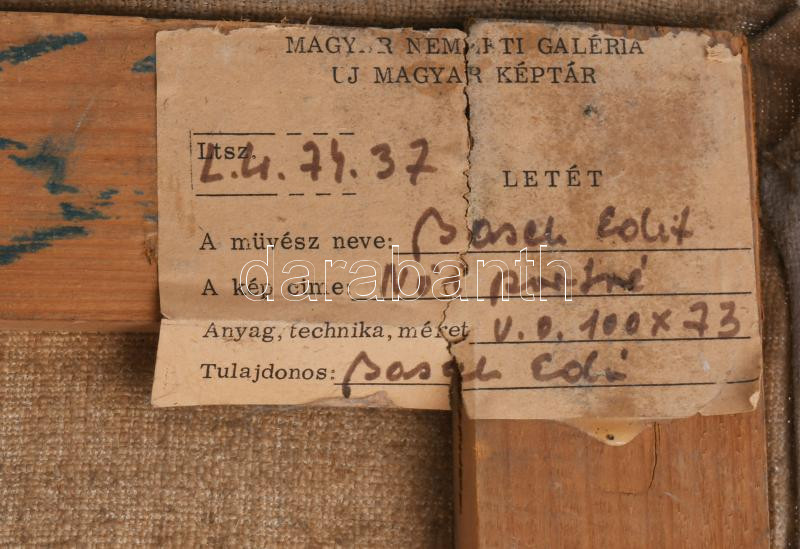 MAGYAR NEMZETI GALÉRIA
UJ MAGYAR KÉPTÁR
Ltsz.
L.U. 74. 37
LETÉT
A müvész neve: Basch Edit
A kép cime: Női portré
Anyag, technika, méret v.o. 100x73
Tulajdonos: Basch Edit
darabanth